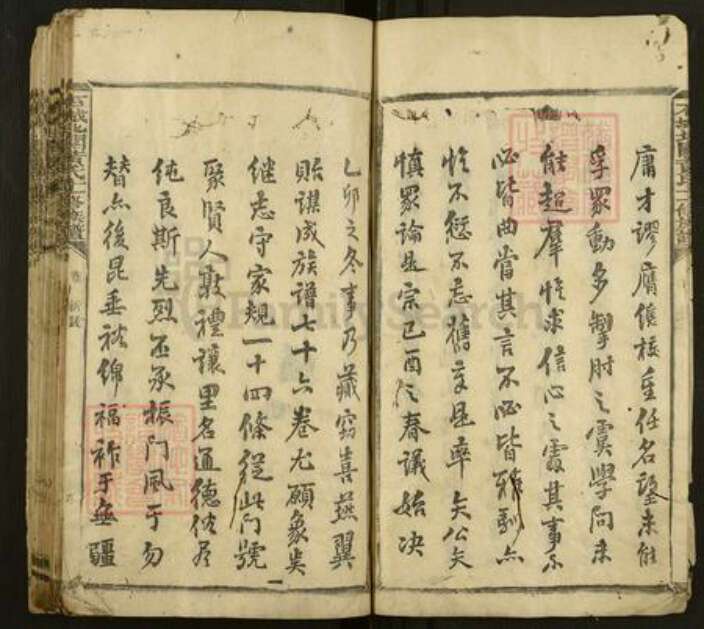 庸才謬膺僎校重任名望未能
孚眾動多掣肘之虞學問未
能超羣惟求信心之處其事不
必皆曲當其言不必皆雅馴亦
惟不愆不忘舊章是率矣公矣
慎眾論是宗己酉之春議始决
乙卯之冬事乃蕆窃喜燕翼
貽謀成族譜七十六卷尤願象賢
继志守家規一十四條從此門號
聚賢人敦禮讓里名通德彼居
純良斯先烈丕承振門風于勿
替亦後昆垂裕錦福祚于無疆
FamilySearch